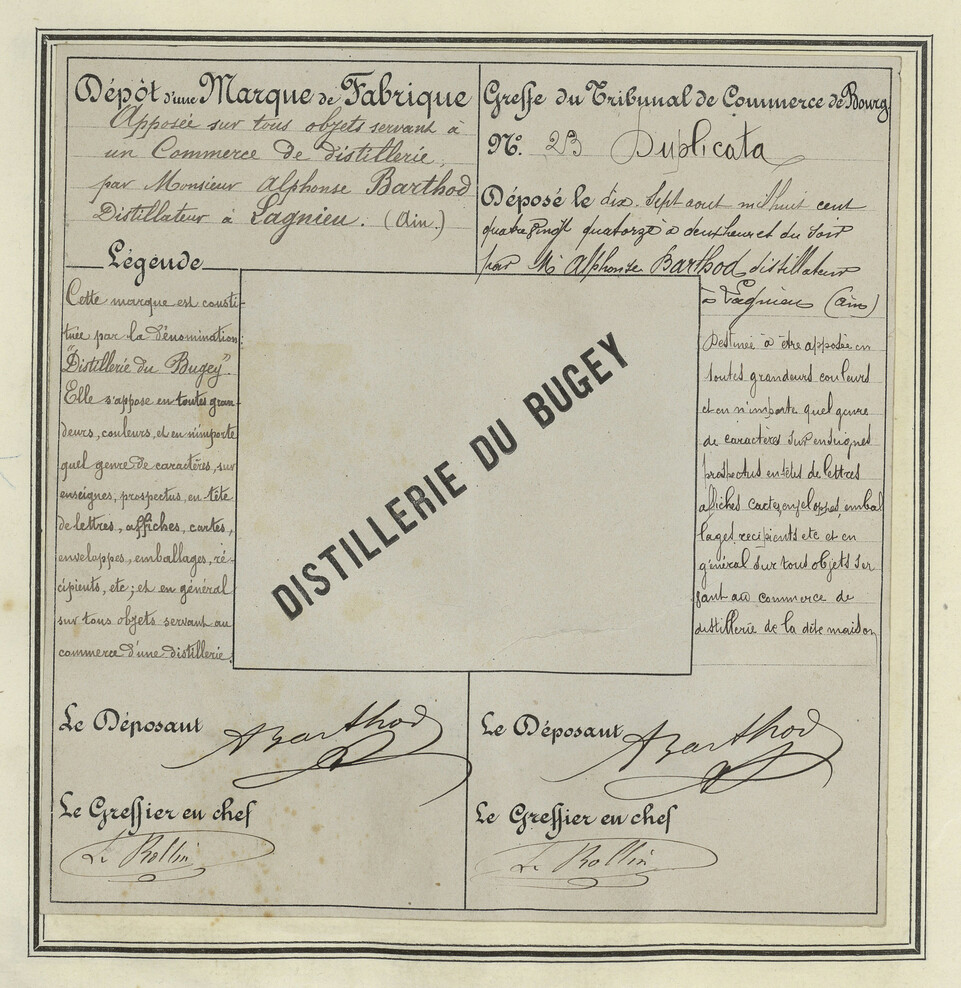 Dépôt d'une Marque de Fabrique
Apposée sur tous objets servant à
un Commerce de distillerie,
par Monsieur Alphonse Barthod
Distillateur à Lagnieu. (Ain.)
Légende
Cette marque est consti-
tuée par la dénomination:
"Distillerie du Bugey".
Elle s'appose en toutes gran-
deurs, couleurs, et en n'importe
quel genre de caractères, sur
enseignes, prospectus, en tête
de lettres, affiches, cartes,
enveloppes, emballages, ré-
cipients, etc; et en général
sur tous objets servant au
commerce d'une distillerie.
Greffe du Tribunal de Commerce de Bourg
N°. 23 Duplicata
Déposé le dix. sept aout mil huit cent
quatre vingt quatorze à deux heures du soir
par Mr Alphonse Barthod distillateur
à Lagnieu (Ain)
Destinée à être apposée en
toutes grandeurs couleurs
et en n'importe quel genre
de caractères sur enseignes
prospectus entêtes de lettres
affiches cartes enveloppes, embal
lages recipients etc et en
général sur tous objets ser
vant au commerce de
distillerie de la dite maison
DISTILLERIE DU BUGEY
Le Déposant ABarthod
Le Greffier en chef
Le Rollin
Le Déposant ABarthod
Le Greffier en chef
Le Rollin